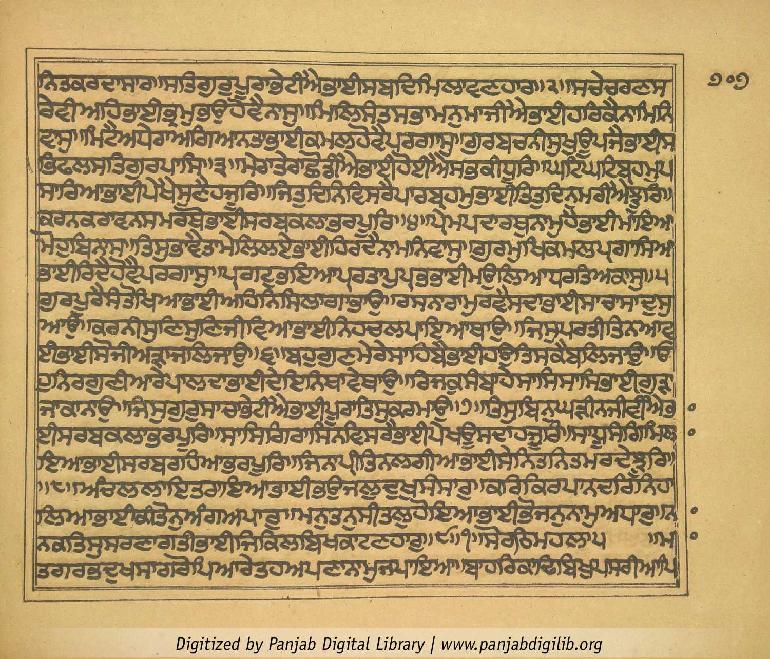 ਨਿਤਕਰਦਾਸਾਰ॥ਸਤਿਗੁਰੁਪੂਰਾਭੇਟੀਐਭਾਈਸਬਦਿਮਿਲਾਵਣਹਾਰ॥੨॥ਸਚੇਚਰਣਸ ੭੦੭
ਰੇਵੀਅਹਿਭਾਈਭ੍ਰਮੁਭਉਹੋਵੈਨਾਸੁ॥ਮਿਲਿਸੰਤਸਭਾਮਨੁਮਾਂਜੀਐਭਾਈਹਰਿਕੈਨਾਮਿਨਿ
ਵਾਸੁ॥ਮਿਟੈਅੰਧੇਰਾਅਗਿਆਨਤਾਭਾਈਕਮਲਹੋਵੈਪਰਗਾਸੁ॥ਗੁਰਬਚਨੀਸੁਖੁਊਪਜੈਭਾਈਸ
ਭਿਫਲਸਤਿਗੁਰਪਾਸਿ॥੩॥ਮੇਰਾਤੇਰਾਛੋਡੀਐਭਾਈਹੋਈਐਸਭਕੀਧੂਰਿ॥ਘਟਿਘਟਿਬ੍ਰਹਮੁਪ
ਸਾਰਿਆਭਾਈਪੇਖੈਸੁਣੈਹਜੂਰਿ॥ਜਿਤੁਦਿਨਿਵਿਸਰੈਪਾਰਬ੍ਰਹਮੁਭਾਈਤਿਤੁਦਿਨਮਰੀਐਝੂਰਿ॥
ਕਰਨਕਰਾਵਨਸਮਰਥੋਭਾਈਸਰਬਕਲਾਭਰਪੂਰਿ॥੪॥ਪ੍ਰੇਮਪਦਾਰਥੁਨਾਮੁਹੈਭਾਈਮਾਇਆ
ਮੋਹਬਿਨਾਸੁ॥ਤਿਸੁਭਾਵੈਤਾਮੇਲਿਲਏਭਾਈਹਿਰਦੈਨਾਮਨਿਵਾਸੁ॥ਗੁਰਮੁਖਿਕਮਲਪ੍ਰਗਾਸਿਆ
ਭਾਈਰਿਦੈਹੋਵੈਪਰਗਾਸੁ॥ਪ੍ਰਗਟੁਭਇਆਪਰਤਾਪੁਪ੍ਰਭਭਾਈਮਉਲਿਆਧਰਤਿਅਕਾਸੁ॥੫
ਗੁਰਿਪੂਰੈਸੰਤੋਖਿਆਭਾਈਅਹਿਨਿਸਿਲਾਗਾਭਾਉ॥ਰਸਨਾਰਾਮੁਰਵੈਸਦਾਭਾਈਸਾਚਾਸਾਦੁਸੁ
ਆਉ॥ਕਰਨੀਸੁਣਿਸੁਣਿਜੀਵਿਆਭਾਈਨਿਹਚਲੁਪਾਇਆਥਾਉ॥ਜਿਸੁਪਰਤੀਤਿਨਆਵ
ਈਭਾਈਸੋਜੀਅੜਾਜਲਿਜਾਉ॥੬॥ਬਹੁਗੁਣਮੇਰੇਸਾਹਿਬੈਭਾਈਹਉਤਿਸਕੈਬਲਿਜਾਉ॥ਓ
ਹੁਨਿਰਗੁਣੀਆਰੇਪਾਲਦਾਭਾਈਦੇਇਨਿਥਾਵੇਥਾਉ॥ਰਿਜਕੁਸੰਬਾਹੇਸਾਸਿਸਾਸਿਭਾਈਗੂੜਾ
ਜਾਕਾਨਾਉ॥ਜਿਸੁਗੁਰੁਸਾਚਾਭੇਟੀਐਭਾਈਪੂਰਾਤਿਸੁਕਰਮਾਉ॥੭॥ਤਿਸੁਬਿਨੁਘੜੀਨਜੀਵੀਐਭਾ
ਈਸਰਬਕਲਾਭਰਪੂਰਿ॥ਸਾਸਿਗਿਰਾਸਿਨਵਿਸਰੈਭਾਈਪੇਖਉਸਦਾਹਜੂਰਿ॥ਸਾਧੂਸੰਗਿਮਿਲਾ
ਇਆਭਾਈਸਰਬਰਹਿਆਭਰਪੂਰਿ॥ਜਿਨਾਪ੍ਰੀਤਿਨਲਗੀਆਭਾਈਸੇਨਿਤਨਿਤਮਰਦੇਝੂਰਿ
॥੮॥ਅੰਚਲਿਲਾਇਤਰਾਇਆਭਾਈਭਉਜਲੁਦੁਖੁਸੰਸਾਰੁ॥ਕਰਿਕਿਰਪਾਨਦਰਿਨਿਹਾ
ਲਿਆਭਾਈਕੀਤੋਨੁਅੰਗੁਅਪਾਰੁ॥ਮਨੁਤਨੁਸੀਤਲੁਹੋਇਆਭਾਈਭੋਜਨੁਨਾਮੁਅਧਾਰੁ॥ਨਾ
ਨਕਤਿਸੁਸਰਣਾਗਤੀਭਾਈਜਿਕਿਲਬਿਖਕਾਟਣਹਾਰੁ॥੯॥੧॥ਸੋਰਠਿਮਹਲਾ੫ ॥ਮਾ
ਤਗਰਭਦੁਖਸਾਗਰੋਪਿਆਰੇਤਹਅਪਣਾਨਾਮੁਜਪਾਇਆ॥ਬਾਹਰਿਕਾਢਿਬਿਖੁਪਸਰੀਆਪਿ
Digitized by Panjab Digital Library | www.panjabdigilib.org